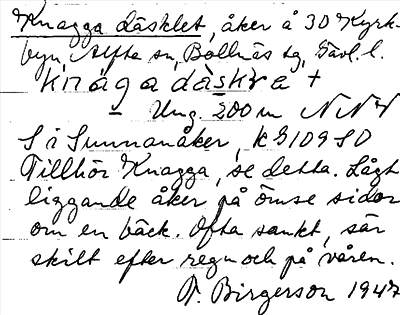 Knagga däsklet, åker å 30 Kyrk-
byn, Alfta sn, Bollnäs tg, Gävl. l.
knágadäskra +
– Ung. 200 m NNV
S i Sunnanåker, K S109 SO
Tillhör Knagga, se detta. Lågt
liggande åker på ömse sidor
om en bäck. Ofta sankt, sär
skilt efter regn och på våren.
T. Birgerson 1947